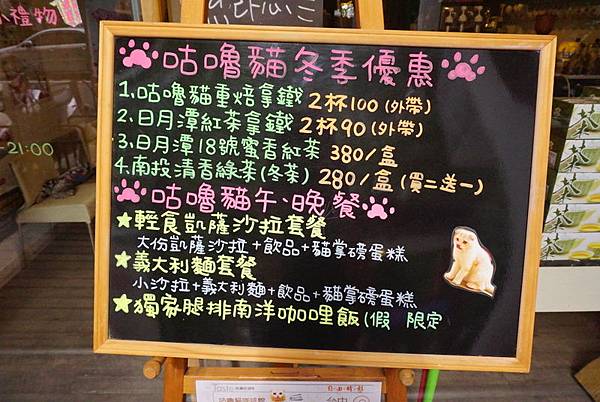 小禮物
咕嚕貓冬季優惠
1.咕嚕貓重焙拿鐵 2杯100(外帶)
2.日月潭紅茶拿鐵 2杯90(外帶)
3.日月潭18號蜜香紅茶 380/盒
4.南投清香綠茶(冬茶) 280/盒(買二送一)
-21:00
咕嚕貓午、晚餐
★輕食凱薩沙拉套餐
大份凱薩沙拉+飲品+貓掌磅蛋糕
★義大利麵套餐
小沙拉+義大利麵+飲品+貓掌磅蛋糕
★獨家腿排南洋咖哩飯(假 限定
茶
茶
Taste